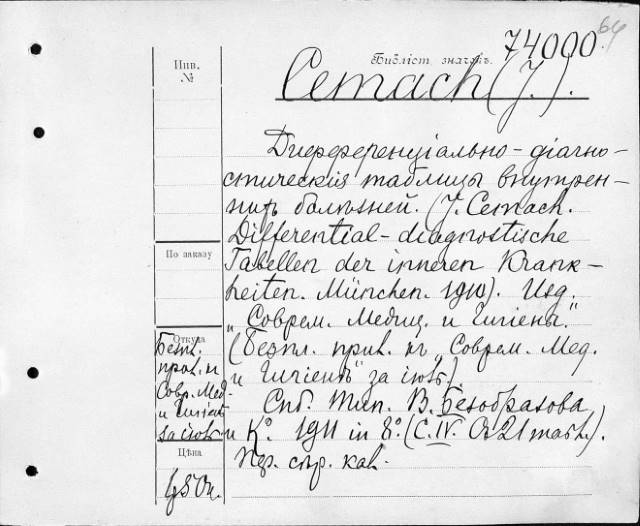 64
74000
Инв.
№
Библіот. значекъ.
Cemach (J.).
Дифференціально-діагно-
стическія таблицы внутрен-
нихъ болѣзней. (J. Cemach.
Differential-diagnostische
Tabellen der inneren Krank-
heiten. München. 1910). Изд.
„Соврем. Медиц. и Гигіена."
(Безпл. прил. къ „Соврем. Мед.
и Гигіенѣ" за
Спб. Тип. В. Безобразова
и Кº. 1911 in 8º. (С. IV. 21 табл.).
По заказу
Откуда
Безпл.
прил. къ
Совр. Мед.
и Гигіенѣ
за
Цѣна